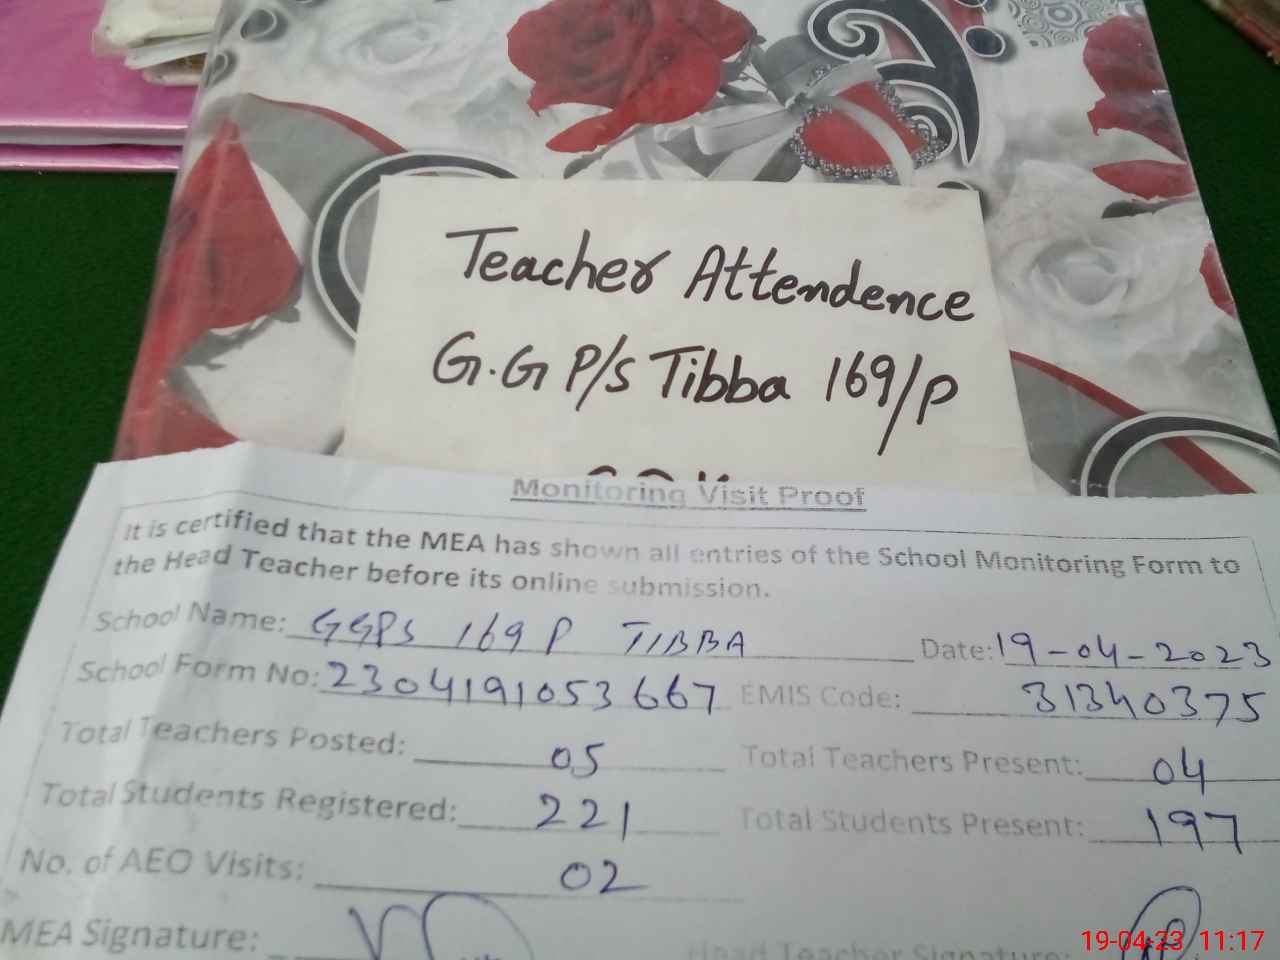 Teacher Attendence
G.G P/S Tibba 169/P
Monitoring Visit Proof
It is certified that the MEA has shown all entries of the School Monitoring Form to
the Head Teacher before its online submission.
School Name: GGPS 169 P TIBBA Date: 19-04-2023
School Form No: 2304191053667 EMIS Code: 31340375
Total Teachers Posted: 05 Total Teachers Present: 04
Total Students Registered: 221 Total Students Present: 197
No. of AEO Visits: 02
MEA Signature: Head Teacher Signature:
19-04-23 11:17